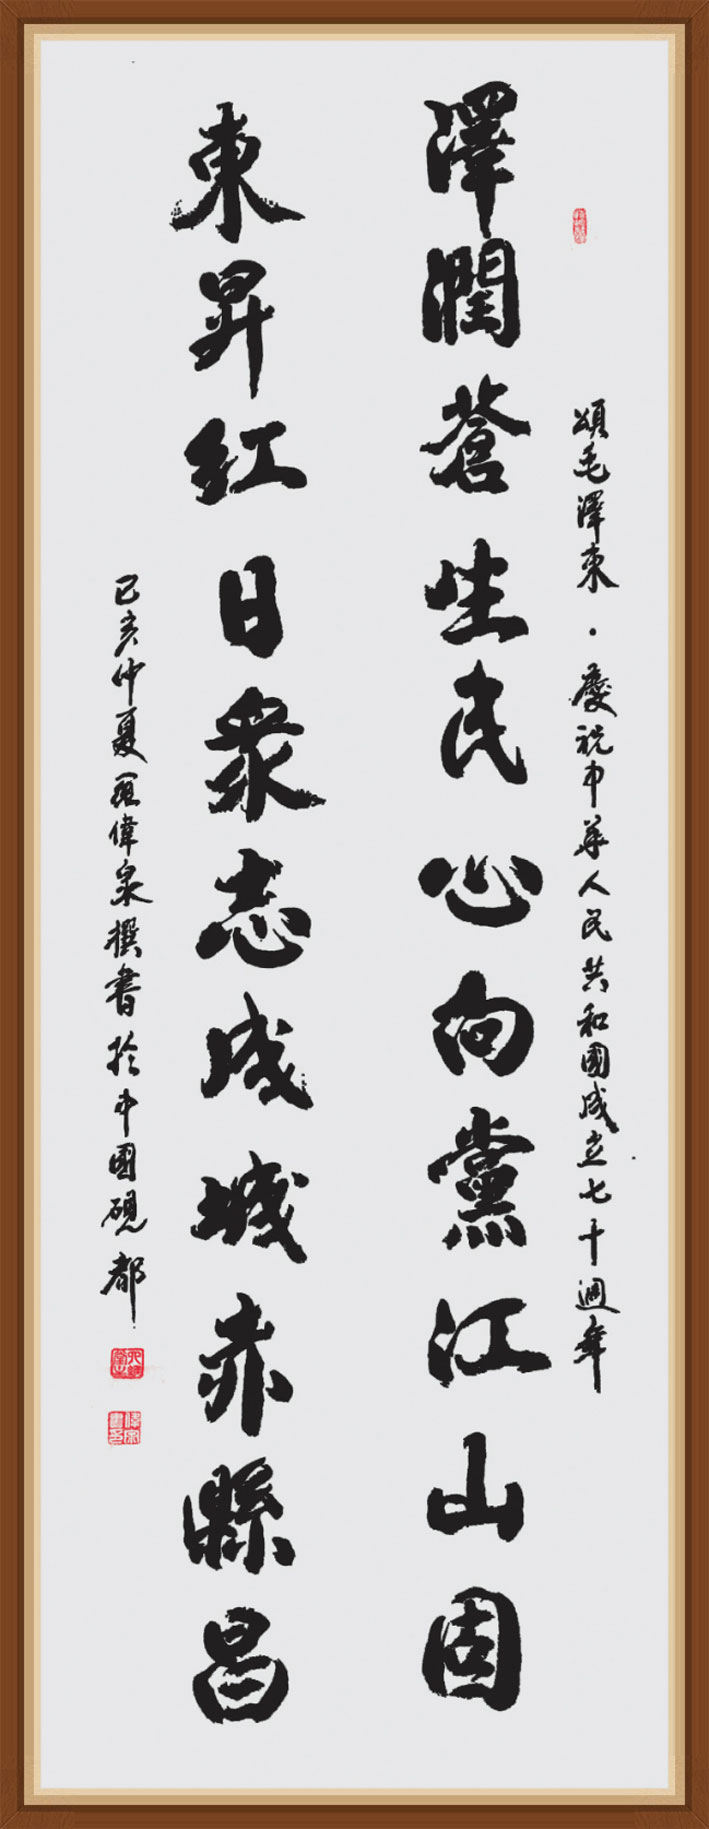 頌毛澤東·慶祝中華人民共和國成立七十週年
澤潤蒼生民心向黨江山固
東昇紅日衆志成城赤縣昌
己亥仲夏羅偉泉撰書於中國硯都